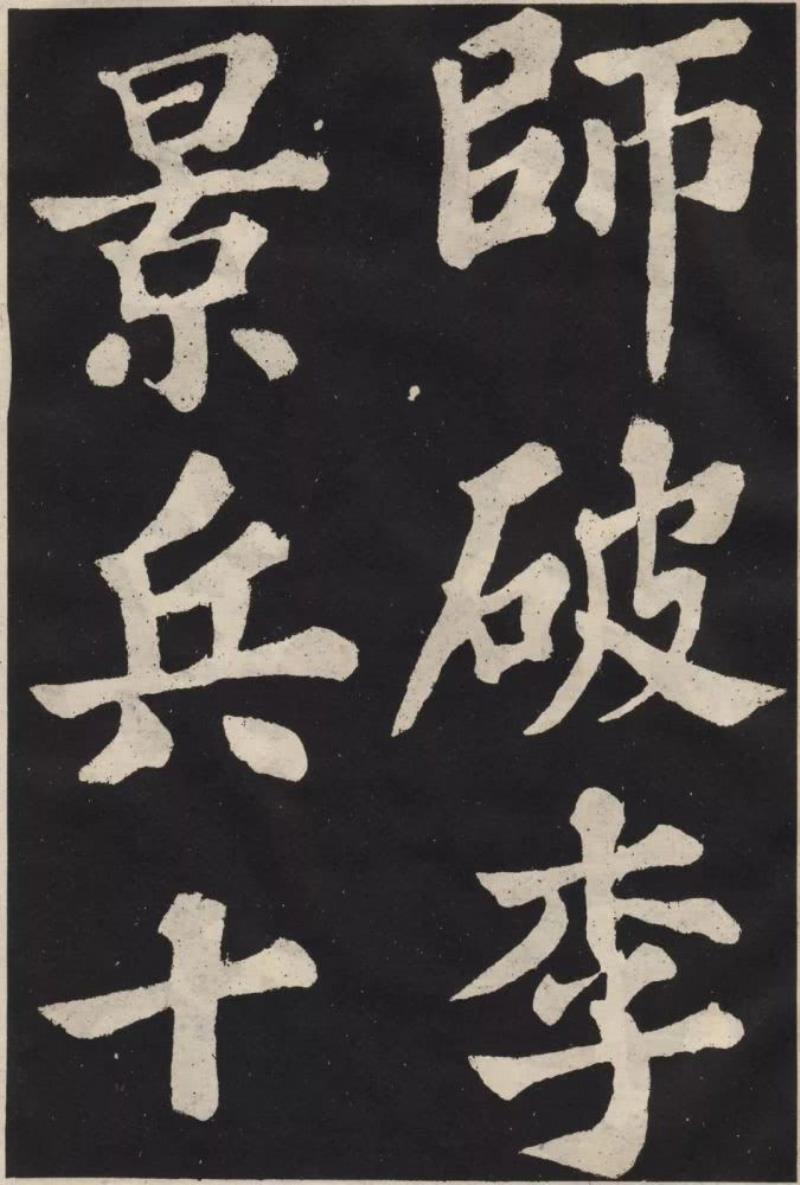 師破李
景兵十